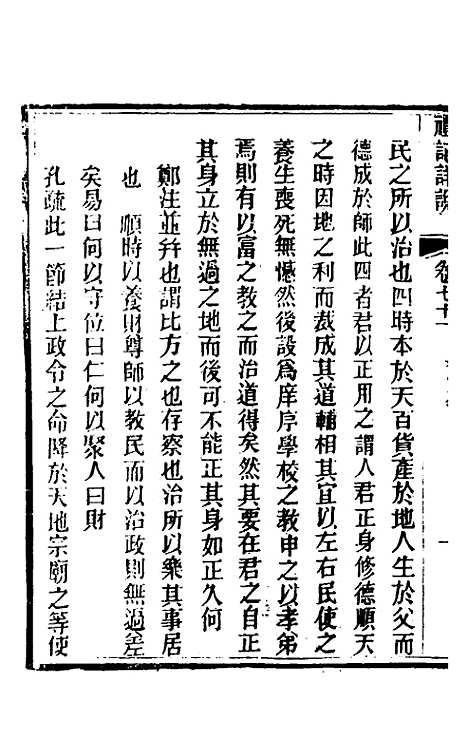 禮記詳說
卷七十一
民之所以治也四時本於天百貨產於地人生於父而
德成於師此四者君以正用之謂人君正身修德順天
之時因地之利而裁成其道輔相其宜以左右民使之
養生喪死無憾然後設為庠序學校之教申之以孝弟
焉則有以富之教之而治道得矣然其要在君之自正
其身立於無過之地而後可不能正其身如正人何
鄭注並并也謂比方之也存察也治所以樂其事居
也　順時以養財尊師以教民而以治政則無過差
矣易曰何以守位曰仁何以聚人曰財
孔疏此一節結上政令之命降於天地宗廟之等使